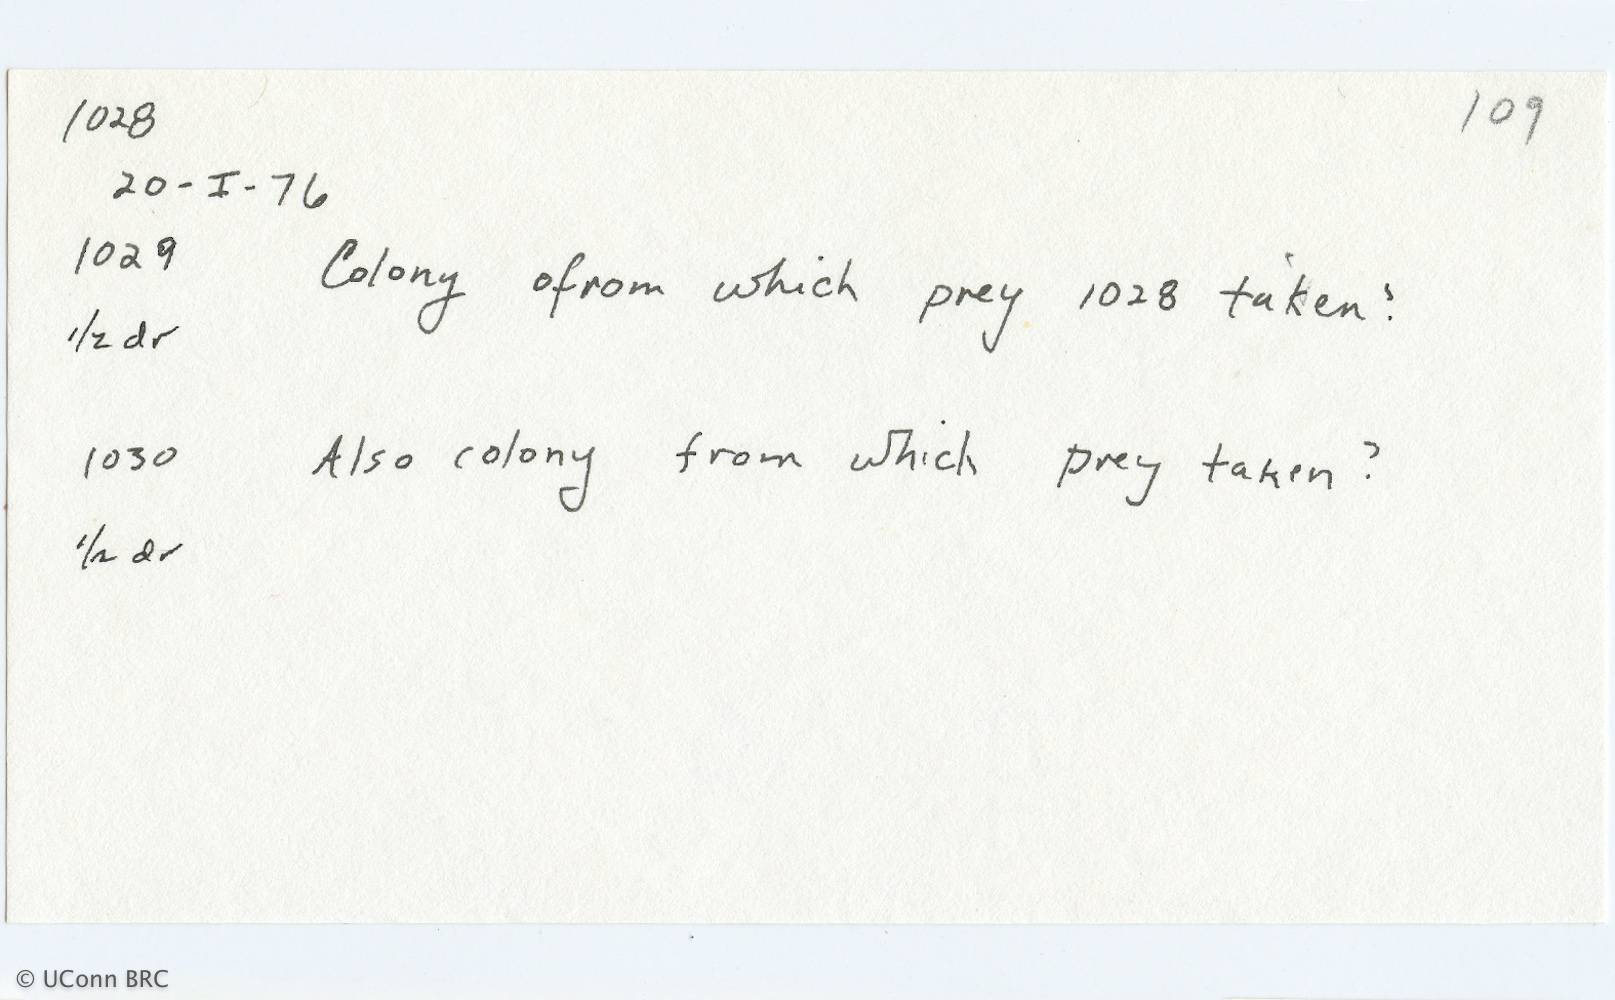 1028
109
20-I-76
1029 Colony ofrom which prey 1028 taken?
1/2 dr
1030 Also colony from which prey taken?
1/2 dr
© UConn BRC